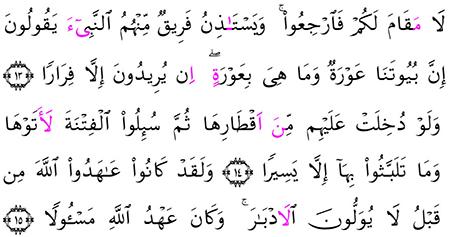 لَا مَقَامَ لَكُمْ فَٱرْجِعُوا۟ ۚ وَيَسْتَـٰذِنُ فَرِيقٌ مِّنْهُمُ ٱلنَّبِىٓءَ يَقُولُونَ
إِنَّ بُيُوتَنَا عَوْرَةٌ وَمَا هِىَ بِعَوْرَةٍ ۖ اِن يُرِيدُونَ إِلَّا فِرَارًا ﴿١٣﴾
وَلَوْ دُخِلَتْ عَلَيْهِم مِّنَ اَقْطَارِهَا ثُمَّ سُئِلُوا۟ ٱلْفِتْنَةَ لَأَتَوْهَا
وَمَا تَلَبَّثُوا۟ بِهَآ إِلَّا يَسِيرًا ﴿١٤﴾ وَلَقَدْ كَانُوا۟ عَـٰهَدُوا۟ ٱللَّهَ مِن
قَبْلُ لَا يُوَلُّونَ ٱلَادْبَـٰرَ ۚ وَكَانَ عَهْدُ ٱللَّهِ مَسْـُٔولًا ﴿١٥﴾